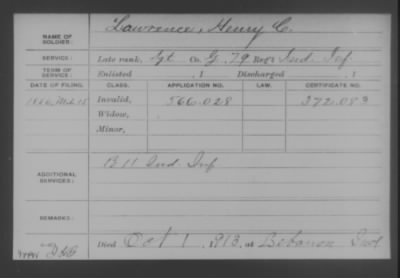 NAME OF SOLDIER: Lawrence, Henry C.
SERVICE: Late rank, Sgt Co. G, 79 Reg't Ind. Inf.
TERM OF SERVICE: Enlisted , 1 Discharged , 1
DATE OF FILING. CLASS. APPLICATION NO. LAW. CERTIFICATE NO.
1886, Mch 15 Invalid, 566.028 372.083
Widow,
Minor,
ADDITIONAL SERVICES: B 11 Ind Inf
REMARKS:
Died Oct 1, 1913, at Lebanon Ind